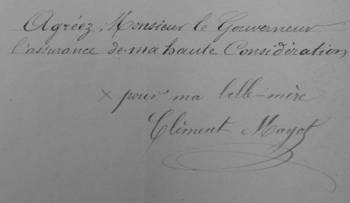 Agréez, Monsieur le Gouverneur
l'assurance de ma haute Considération
x pour ma belle-mère
Clément Mayot